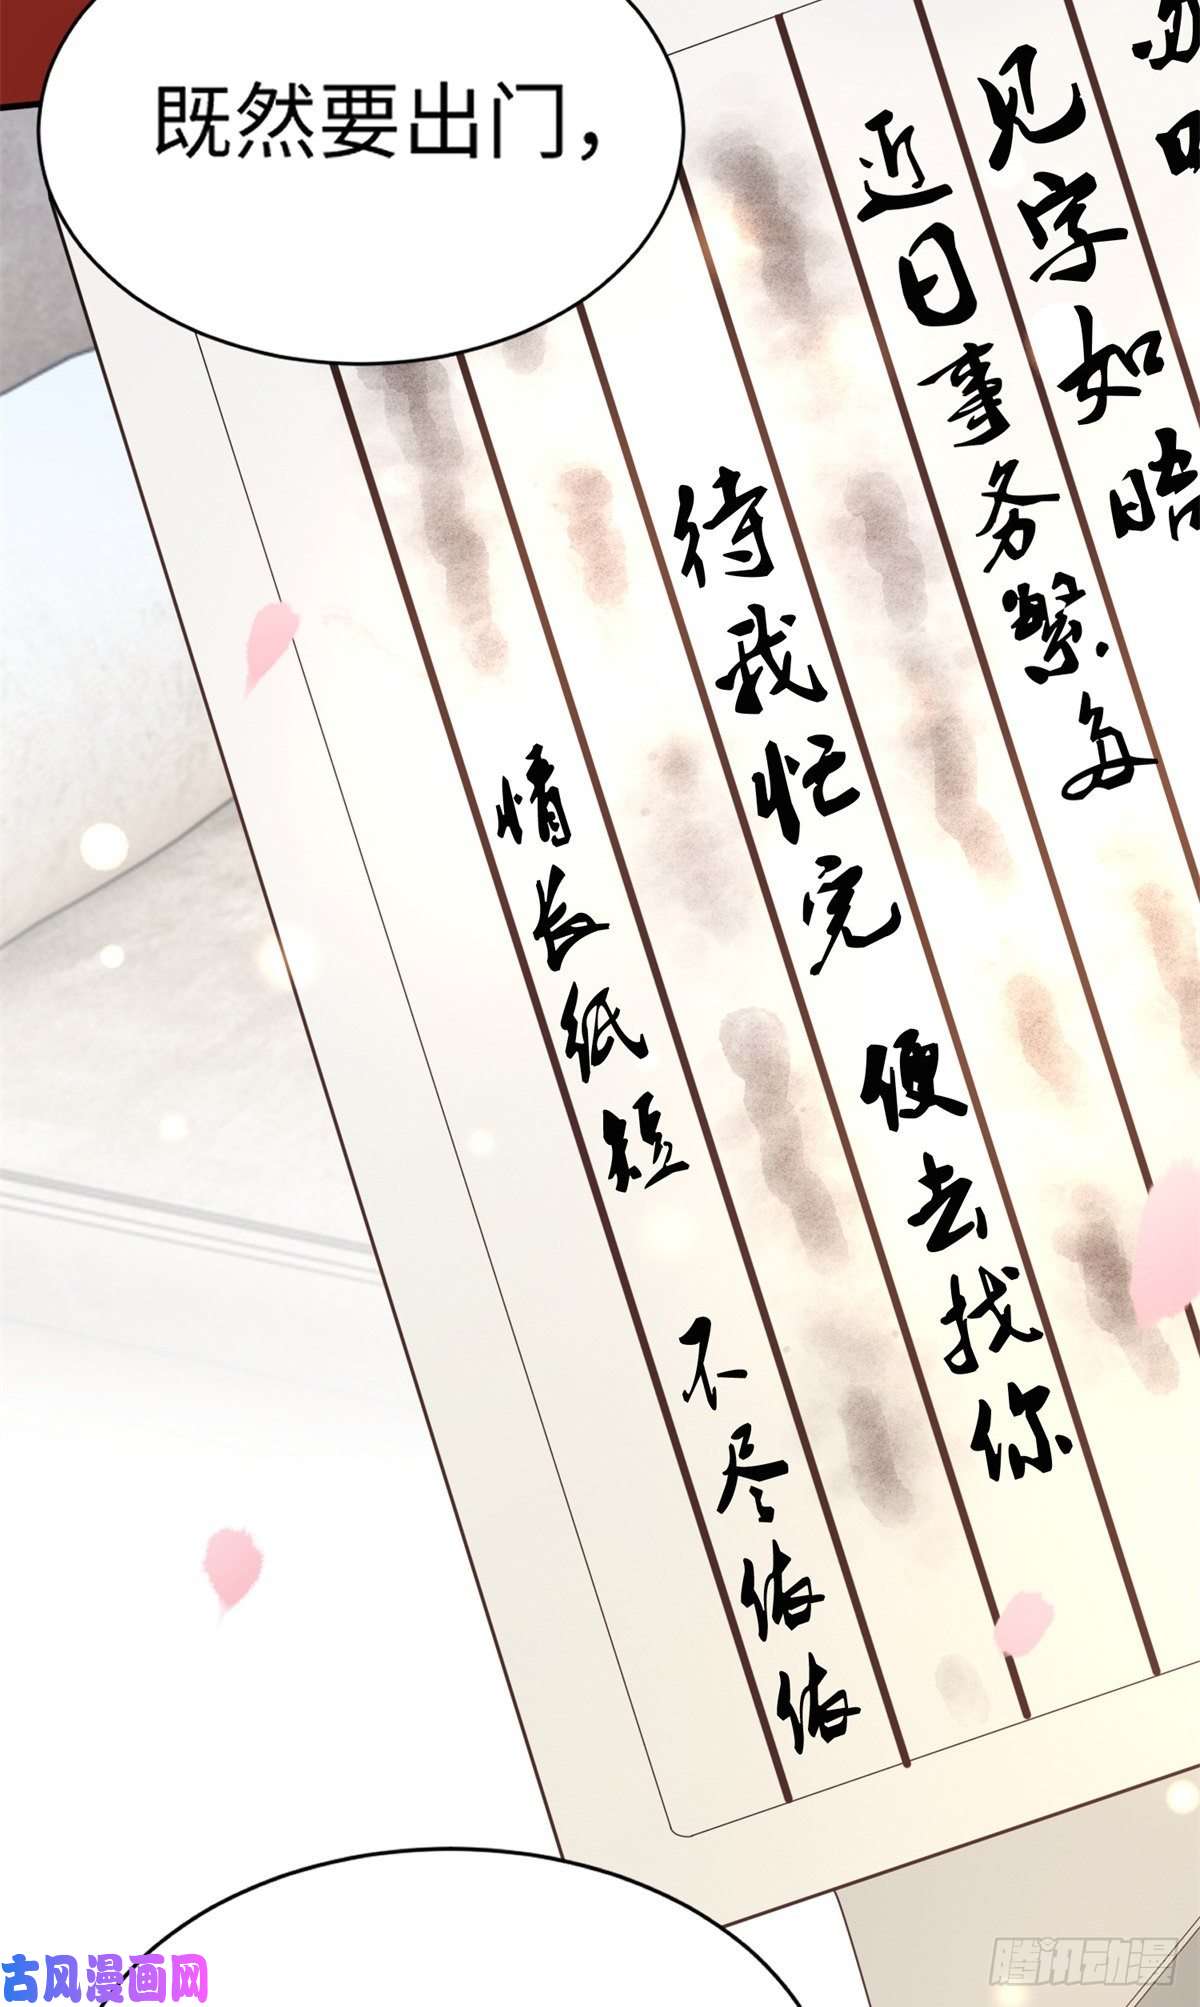 既然要出门，
见字如晤
近日事务繁多
待我忙完 便去找你
情长纸短 不尽依依
古风漫画网
腾讯动漫